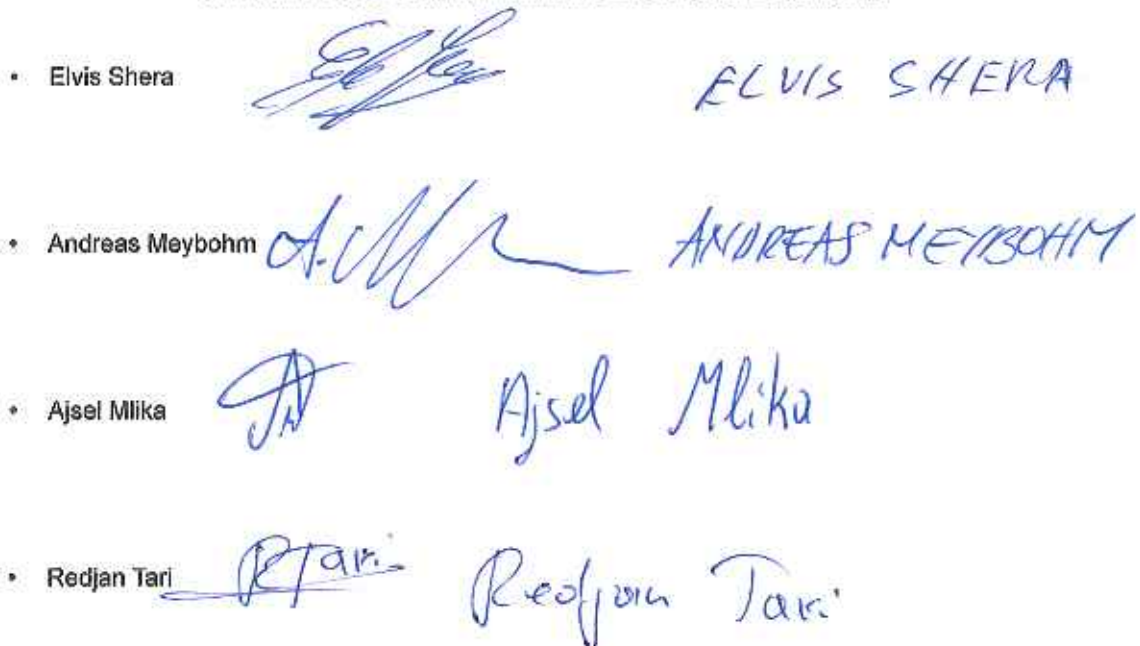 • Elvis Shera ELVIS SHERA
• Andreas Meybohm A. ANDREAS MEYBOHM
• Ajsel Mlika Ajsel Mlika
• Redjan Tari RTari Redjan Tari